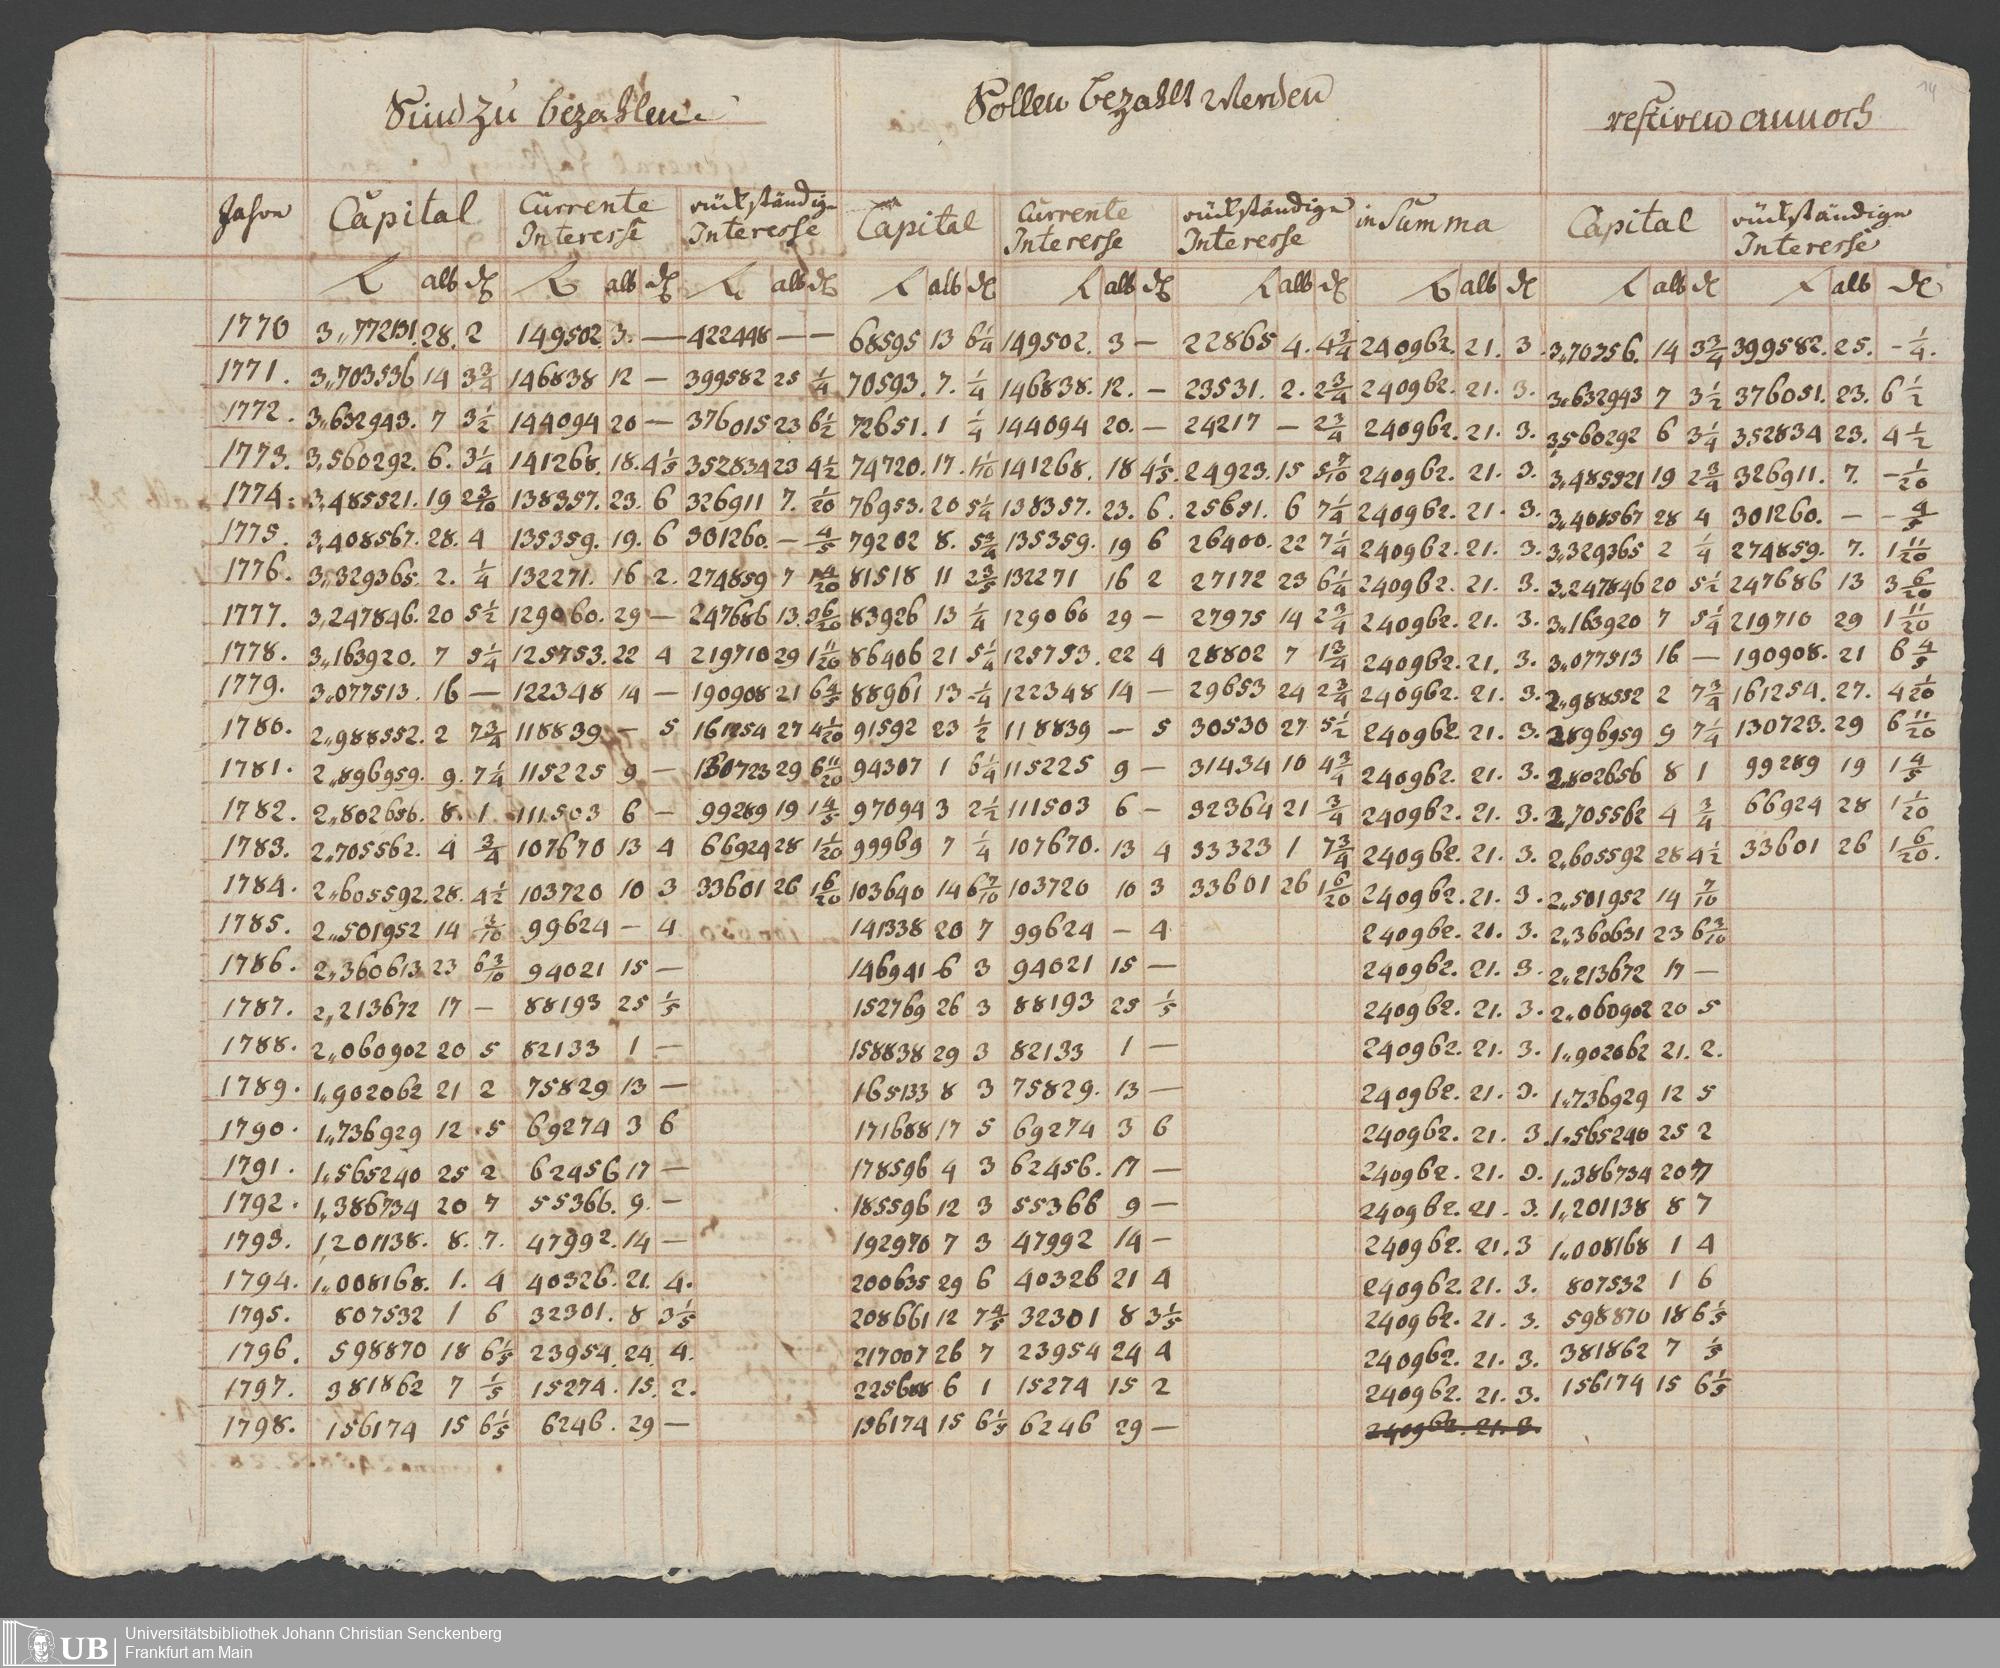 14
Sind zu bezahlen
Sollen bezahlt werden
restiren annoch
Jahre Capital Currente Interesse rückständige Interesse Capital Currente Interesse rückständige Interesse in Summa Capital rückständige Interesse
alb alb alb alb alb alb alb alb alb
1770 3,,772131. 28. 2 149502. 3. — 422448 — — 68595 13 6 1/4 149502. 3 — 22865 4. 4 3/4 240962. 21. 3. 3,,70356. 14 3 3/4 399582. 25. - 1/4.
1771. 3,,703536 14 3 3/4 146838 12 — 399582 25 1/4 70593. 7. 1/4 146838. 12. — 23531. 2. 2 3/4 240962. 21. 3. 3,,632943 7 3 1/2 376051. 23. 6 1/2
1772. 3,,632943. 7 3 1/2 144094 20 — 376015 23 6 1/2 72651. 1 1/4 144094 20. — 24217 — 2 3/4 240962. 21. 3. 3,560292 6 3 1/4 352834 23. 4 1/2
1773. 3,560292. 6. 3 1/4 141268. 18. 4 1/5 352834 23 4 1/2 74720. 17. 1/10 141268. 18 4 1/5. 24923. 15 5 7/10 240962. 21. 3. 3,,485521 19 2 3/4 326911. 7. - 1/20
1774: 3,,485521. 19 2 3/10 138357. 23. 6 326911 7. 1/20 76953. 20 5 1/4 138357. 23. 6. 25651. 6 7 1/4 240962. 21. 3. 3,,408567 28 4 301260. — - 4/5
1775. 3,408567. 28. 4 135359. 19. 6 301260. — 4/5 79202 8. 5 3/4 135359. 19 6 26400. 22 7 1/4 240962. 21. 3. 3,,329365 2 1/4 274859. 7. 1 11/20
1776. 3,,329365. 2. 1/4 132271. 16 2. 274859 7 1 4/20 81518 11 2 3/5 132271 16 2 27172 23 6 1/4 240962. 21. 3. 3,,247846 20 5 1/2 247686 13 3 6/20
1777. 3,247846. 20 5 1/2 129060. 29 — 247686 13. 3 6/20 83926 13 1/4 129060 29 — 27975 14 2 3/4 240962. 21. 3. 3,,163920 7 5 1/4 219710 29 1 11/20
1778. 3,,163920. 7 5 1/4 125753. 22 4 219710 29 1 11/20 86406 21 5 1/4 125753. 22 4 28802 7 1 3/4 240962. 21. 3. 3,,077513 16 — 190908. 21 6 4/5
1779. 3,077513. 16 — 122348 14 — 190908 21 6 4/5 88961 13 1/4 122348 14 — 29653 24 2 3/4 240962. 21. 3. 2,,988552 2 7 3/4 161254. 27. 4 1/20
1780. 2,,988552. 2 7 3/4 118839 — 5 161254 27 4 1/20 91592 23 1/2 118839 — 5 30530 27 5 1/2 240962. 21. 3. 2896959 9 7 1/4 130723. 29 6 11/20
1781. 2,,896959. 9. 7 1/4 115225 9 — 130723 29 6 11/20 94307 1 6 1/4 115225 9 — 31434 10 4 3/4 240962. 21. 3. 2,802656 8 1 99289 19 1 4/5
1782. 2,,802656. 8. 1 111503 6 — 99289 19 1 4/5 97094 3 2 1/2 111503 6 — 32364 21 3/4 240962. 21. 3. 2,705562 4 3/4 66924 28 1 1/20
1783. 2,,705562. 4 3/4 107670 13 4 66924 28 1 1/20 99969 7 1/4 107670. 13 4 33323 1 7 3/4 240962. 21. 3. 2,,605592 28 4 1/2 33601 26 1 6/20.
1784. 2,,605592. 28. 4 1/2 103720 10 3 33601 26 1 6/20 103640 14 6 7/10 103720 10 3 33601 26 1 6/20 240962. 21. 3. 2,,501952 14 7/10
1785. 2,,501952 14 3/10 99624 — 4 141338 20 7 99624 — 4 240962. 21. 3. 2,,360631 23 6 3/10
1786. 2,,360613 23 6 3/10 94021 15 — 146941 6 3 94021 15 — 240962. 21. 3. 2,,213672 17 —
1787. 2,,213672 17 — 88193 25 1/5 152769 26 3 88193 25 1/5 240962. 21. 3. 2,,060902 20 5
1788. 2,,060902 20 5 82133 1 — 158838 29 3 82133 1 — 240962. 21. 3. 1,,902062 21. 2.
1789. 1,,902062 21 2 75829 13 — 165133 8 3 75829. 13 — 240962. 21. 3. 1,,736929 12 5
1790. 1,,736929 12 5 69274 3 6 171688 17 5 69274 3 6 240962. 21. 3. 1,,565240 25 2
1791. 1,,565240 25 2 62456 17 — 178596 4 3 62456. 17 — 240962. 21. 3. 1,,386734 20 7
1792. 1,,386734 20 7 55366. 9. — 185596 12 3 55366 9 — 240962. 21. 3. 1,,201138 8 7
1793. 1,201138. 8. 7. 47992. 14 — 192970 7 3 47992 14 — 240962. 21. 3 1,,008168 1 4
1794. 1,,008168. 1. 4 40326. 21. 4. 200635 29 6 40326 21 4 240962. 21. 3. 807532 1 6
1795. 807532 1 6 32301. 8 3 1/5 208661 12 7 4/5 32301 8 3 1/5 240962. 21. 3. 598870 18 6 1/5
1796. 598870 18 6 1/5 23954. 24. 4. 217007 26 7 23954 24 4 240962. 21. 3. 381862 7 1/5
1797. 381862 7 1/5 15274. 15. 2. 225688 6 1 15274 15 2 240962. 21. 3. 156174 15 6 1/5
1798. 156174 15 6 1/5 6246. 29 — 156174 15 6 1/5 6246 29 — 240962. 21. 3.
UB
Universitätsbibliothek Johann Christian Senckenberg
Frankfurt am Main